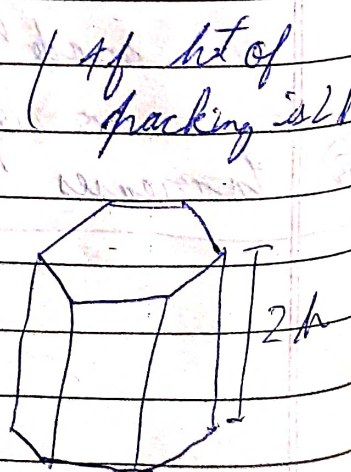 ( If ht of
packing is 2h
2h